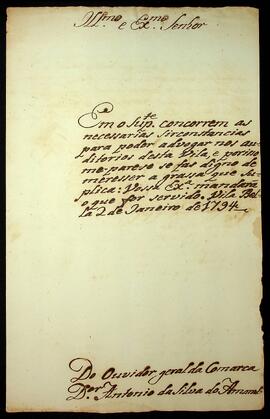 Illmo e Exmo Senhor
Em o supte concorrem as
necessarias sirconstancias
para poder advogar nos au-
ditorios desta Vila, e por isso
me parese se fas digno de
meresser a grassa que Su-
plica: Vossa Exa mandará
o que for servido. Vila Bel-
la 2 de Janeiro de 1794
Do Ouvidor geral da Comarca
Dor Antonio da Silva do Amaral